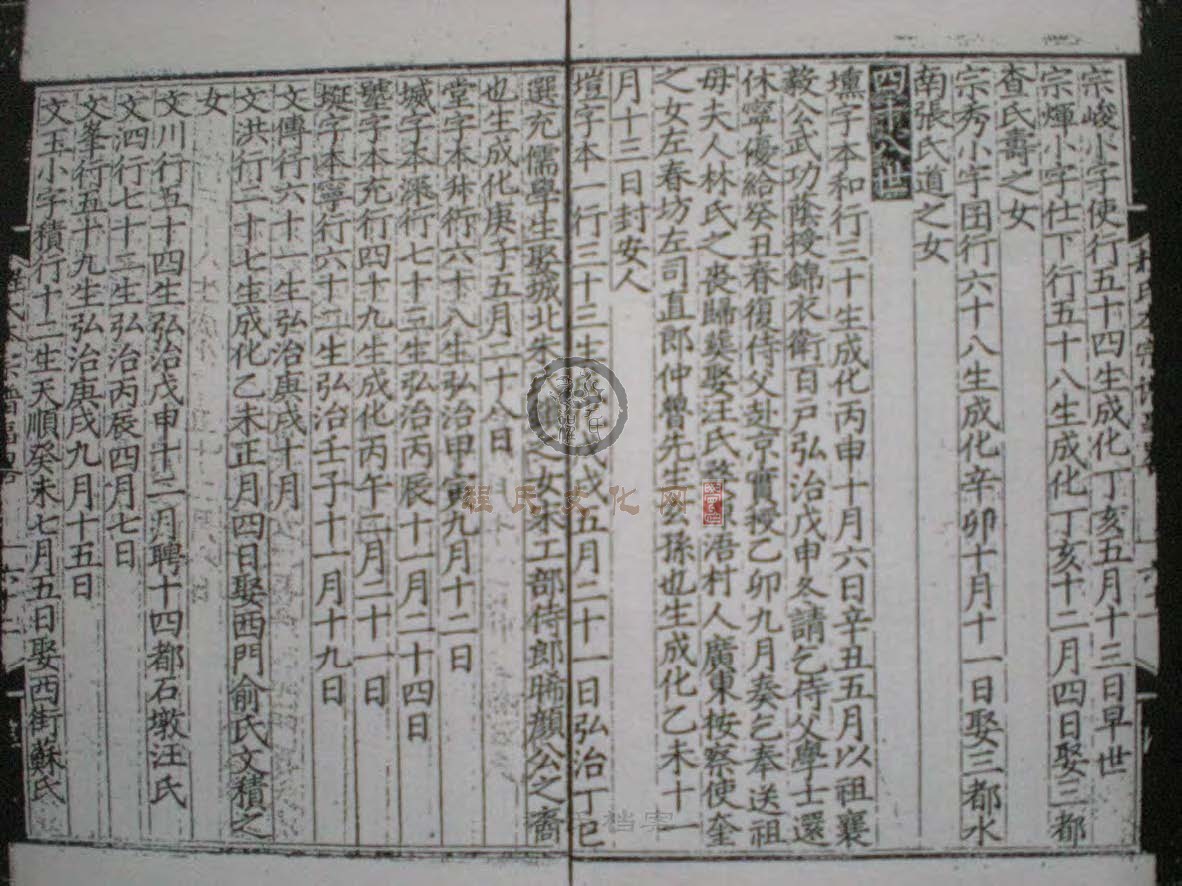 宗峻小字使行五十四生成化丁亥五月十三日早世
宗煇小字仕下行五十八生成化丁亥十二月四日娶三都
查氏壽之女
宗秀小字団行六十八生成化辛卯十月十一日娶三都水
南張氏道之女
四十八世
壎字本和行三十生成化丙申十月六日辛丑五月以祖襄
毅公武功蔭授錦衣衛百戶弘治戊申冬請乞侍父學士還
休寧優給癸丑春復侍父赴京實授乙卯九月奏乞奉送祖
母夫人林氏之喪歸葬娶汪氏婺源浯村人廣東按察使奎
之女左春坊左司直郎仲魯先生玄孫也生成化乙未十一
月十三日封安人
塏字本一行三十三生成化戊戌五月二十一日弘治丁巳
選充儒學生娶城北朱氏之女宋工部侍郎晞顏公之裔
也生成化庚子五月二十八日
堂字本升行六十八生弘治甲寅九月十二日
堿字本深行七十三生弘治丙辰十一月二十四日
壂字本充行四十九生成化丙午二月二十一日
埏字本寧行六十二生弘治壬子十一月十九日
文傳行六十一生弘治庚戌十月
文洪行二十七生成化乙未正月四日娶西門俞氏文積之
女
文川行五十四生弘治戊申十二月聘十四都石墩汪氏
文泗行七十二生弘治丙辰四月七日
文峯行五十九生弘治庚戌九月十五日
文玉小字積行十二生天順癸未七月五日娶西街蘇氏
程氏文化网